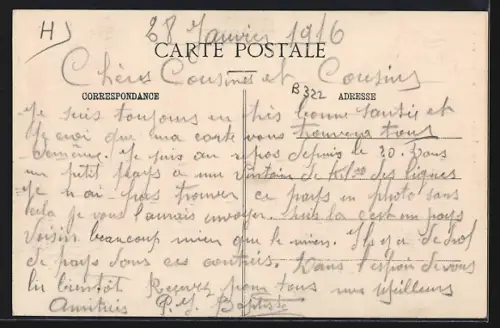 H)
28 Janvier 1916
CARTE POSTALE
Chères Cousines et Cousins
B 322
CORRESPONDANCE ADRESSE
Je suis toujours en très bonne santée et
je croi que ma carte vous trouvera tous
de même. Je suis au repos depuis le 20. Dans
un petit pays a une vintaine de Kilos des lignes
Je n'ai pas trouver ce pays en photo sans
cela je vous l'aurais envoyer. sur la c'est un pays
voisin beaucoup mieux que le mien. Il y a de
de pays dans ces contrés. Dans l'espoir de vous
lir bientôt Recevez pour tous mes meilleurs
Amitiés P. J. Baptiste